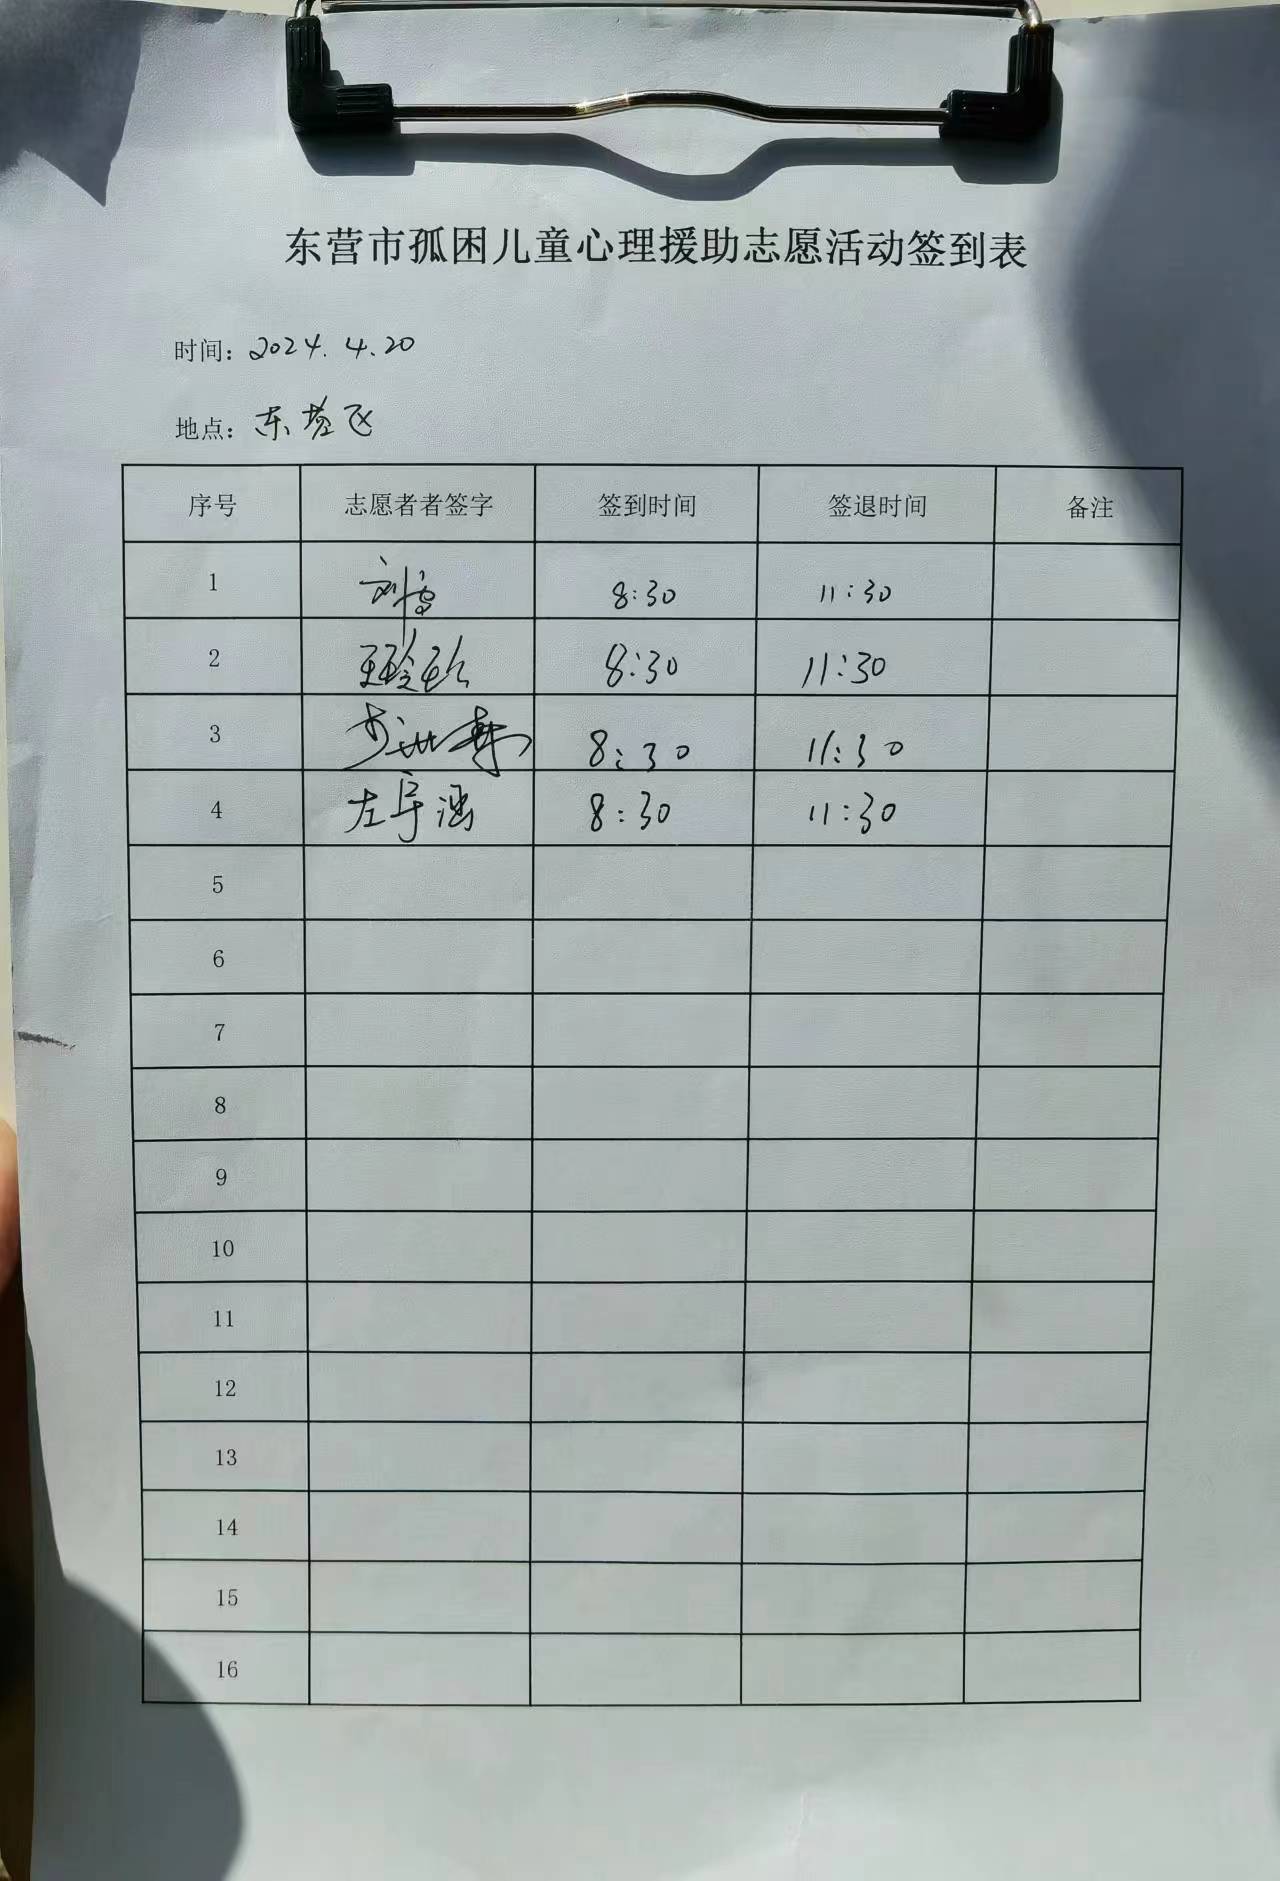 东营市孤困儿童心理援助志愿活动签到表
时间：2024.4.20
地点：东营区
序号 志愿者者签字 签到时间 签退时间 备注
1 8:30 11:30
2 8:30 11:30
3 8:30 11:30
4 左宇涵 8:30 11:30
5
6
7
8
9
10
11
12
13
14
15
16